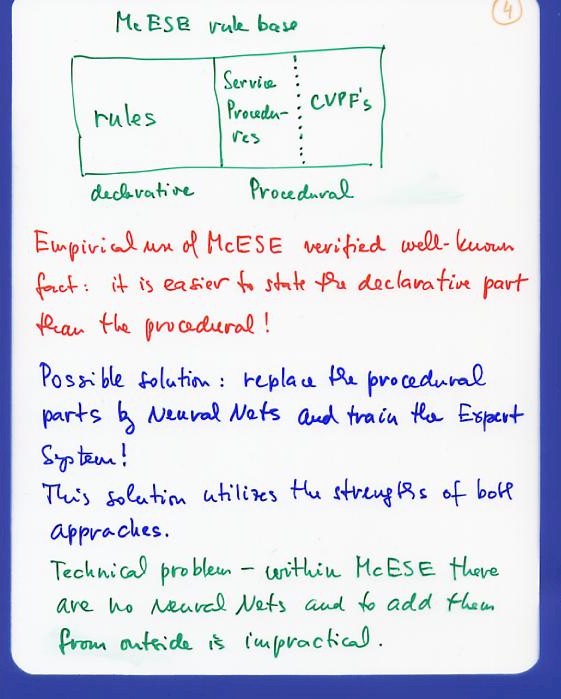 4
McESE rule base
rules
Service
Procedu-
res
CVPF's
declarative
Procedural
Empirical use of McESE verified well-known
fact: it is easier to state the declarative part
than the procedural!
Possible solution: replace the procedural
parts by Neural Nets and train the Expert
System!
This solution utilizes the strengths of both
appraches.
Technical problem – within McESE there
are no Neural Nets and to add them
from outside is impractical.